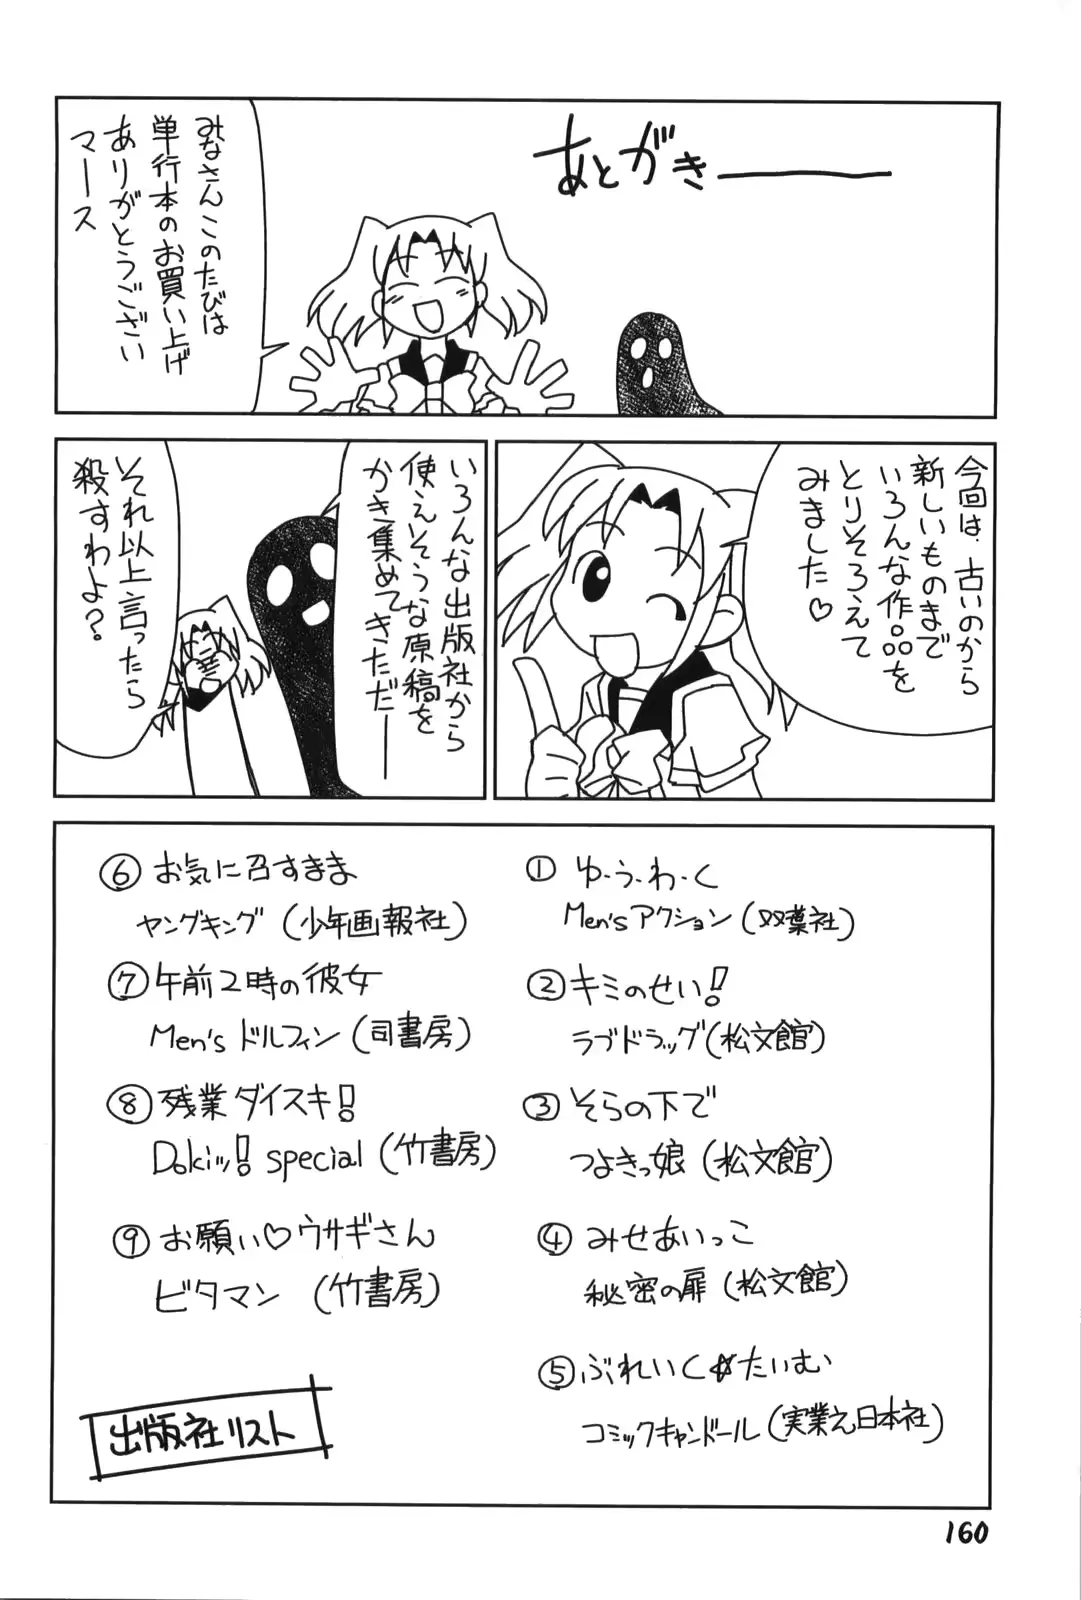 あとがき――
みなさんこのたびは
単行本のお買い上げ
ありがとうござい
マース
今回は、古いのから
新しいものまで
いろんな作品を
とりそろえて
みました♡
いろんな出版社から
使えそうな原稿を
かき集めてきただ――
それ以上言ったら
殺すわよ？
① ゆ・う・わ・く
Men'sアクション（双葉社）
② キミのせい!
ラブドラッグ（松文館）
③ そらの下で
つよきっ娘（松文館）
④ みせあいっこ
秘密の扉（松文館）
⑤ ぶれいく☆たいむ
コミックキャンドール（実業之日本社）
⑥ お気に召すまま
ヤングキング（少年画報社）
⑦ 午前2時の彼女
Men's ドルフィン（司書房）
⑧ 残業ダイスキ!
Dokiッ! special（竹書房）
⑨ お願い♡ウサギさん
ビタマン（竹書房）
出版社リスト
160